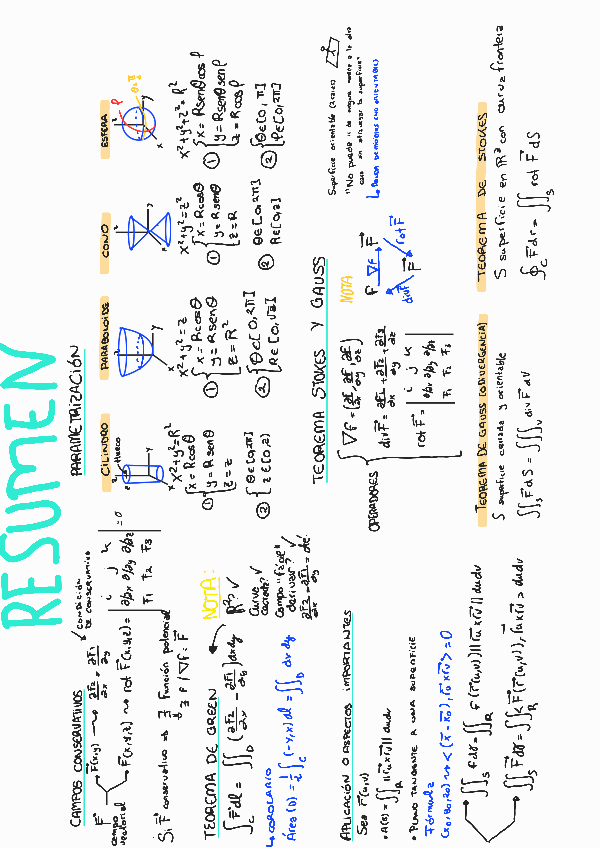 RESUMEN
CAMPOS CONSERVATIVOS
F⃗ campo vectorial
F⃗(x,y) ⇝ ∂F2/∂x = ∂F1/∂y
↙ CONDICIÓN DE CONSERVATIVO
F⃗(x,y,z) ⇝ rot F⃗(x,y,z) = | i j k ; ∂/∂x ∂/∂y ∂/∂z ; F1 F2 F3 | = 0
Si F⃗ conservativo ⇒ ∃ función potencial
∃ f / ∇f = F⃗
TEOREMA DE GREEN
∫_C F⃗ dℓ = ∬_D (∂F2/∂x - ∂F1/∂y) dxdy
↳ COROLARIO
Área (D) = 1/2 ∫_C (-y,x) dℓ = ∬_D dx dy
NOTA:
R²? ✓
Curva cerrada? ✓
Campo "fácil" derivar? ✓
∂F2/∂x - ∂F1/∂y = cte
APLICACIÓN O ASPECTOS IMPORTANTES
Sea r⃗(u,v)
• A(s) = ∬_R ||r⃗u x r⃗v|| dudv
• PLANO TANGENTE A UNA SUPERFICIE
Fórmula
(x0, y0, z0) ⇝ < (x⃗ - x⃗0), r⃗u x r⃗v > = 0
∬_S f dσ = ∬_R f(r⃗(u,v)) ||r⃗u x r⃗v|| dudv
∬_S F⃗ dσ⃗ = ∬_R < F(r⃗(u,v)), r⃗u x r⃗v > dudv
PARAMETRIZACIÓN
CILINDRO
Hueco
x²+y²=R²
① { x = Rcosθ
y = R senθ
z = z
② { θ∈[0,2π]
z∈[0,2)
PARABOLOIDE
x²+y²=z
① { x = Rcosθ
y = R senθ
z = R²
② { θ∈[0,2π]
R∈[0,√2]
CONO
x²+y²=z²
① { x = Rcosθ
y = R senθ
z = R
② θ∈[0,2π]
R∈[0,2]
ESFERA
x²+y²+z²=R²
① { x = Rsenθcosρ
y = Rsenθsenρ
z = Rcosρ
② { θ∈[0,π]
ρ∈[0,2π]
TEOREMA STOKES Y GAUSS
OPERADORES
∇f = (∂f/∂x, ∂f/∂y, ∂f/∂z)
div F⃗ = ∂F1/∂x + ∂F2/∂y + ∂F3/∂z
rot F⃗ = | i j k ; ∂/∂x ∂/∂y ∂/∂z ; F1 F2 F3 |
NOTA
f ∇f F⃗
div F⃗ F⃗ rot F⃗
Superficie orientable (2 caras)
"No puede ir de una cara a la otra sin atravesar la superficie"
TEOREMA DE GAUSS (O DIVERGENCIA)
S superficie cerrada y orientable
∬_S F⃗ dS = ∭_V div F⃗ dV
TEOREMA DE STOKES
S superficie en R³ con curva frontera
∮_C F⃗ dr = ∬_S rot F⃗ dS